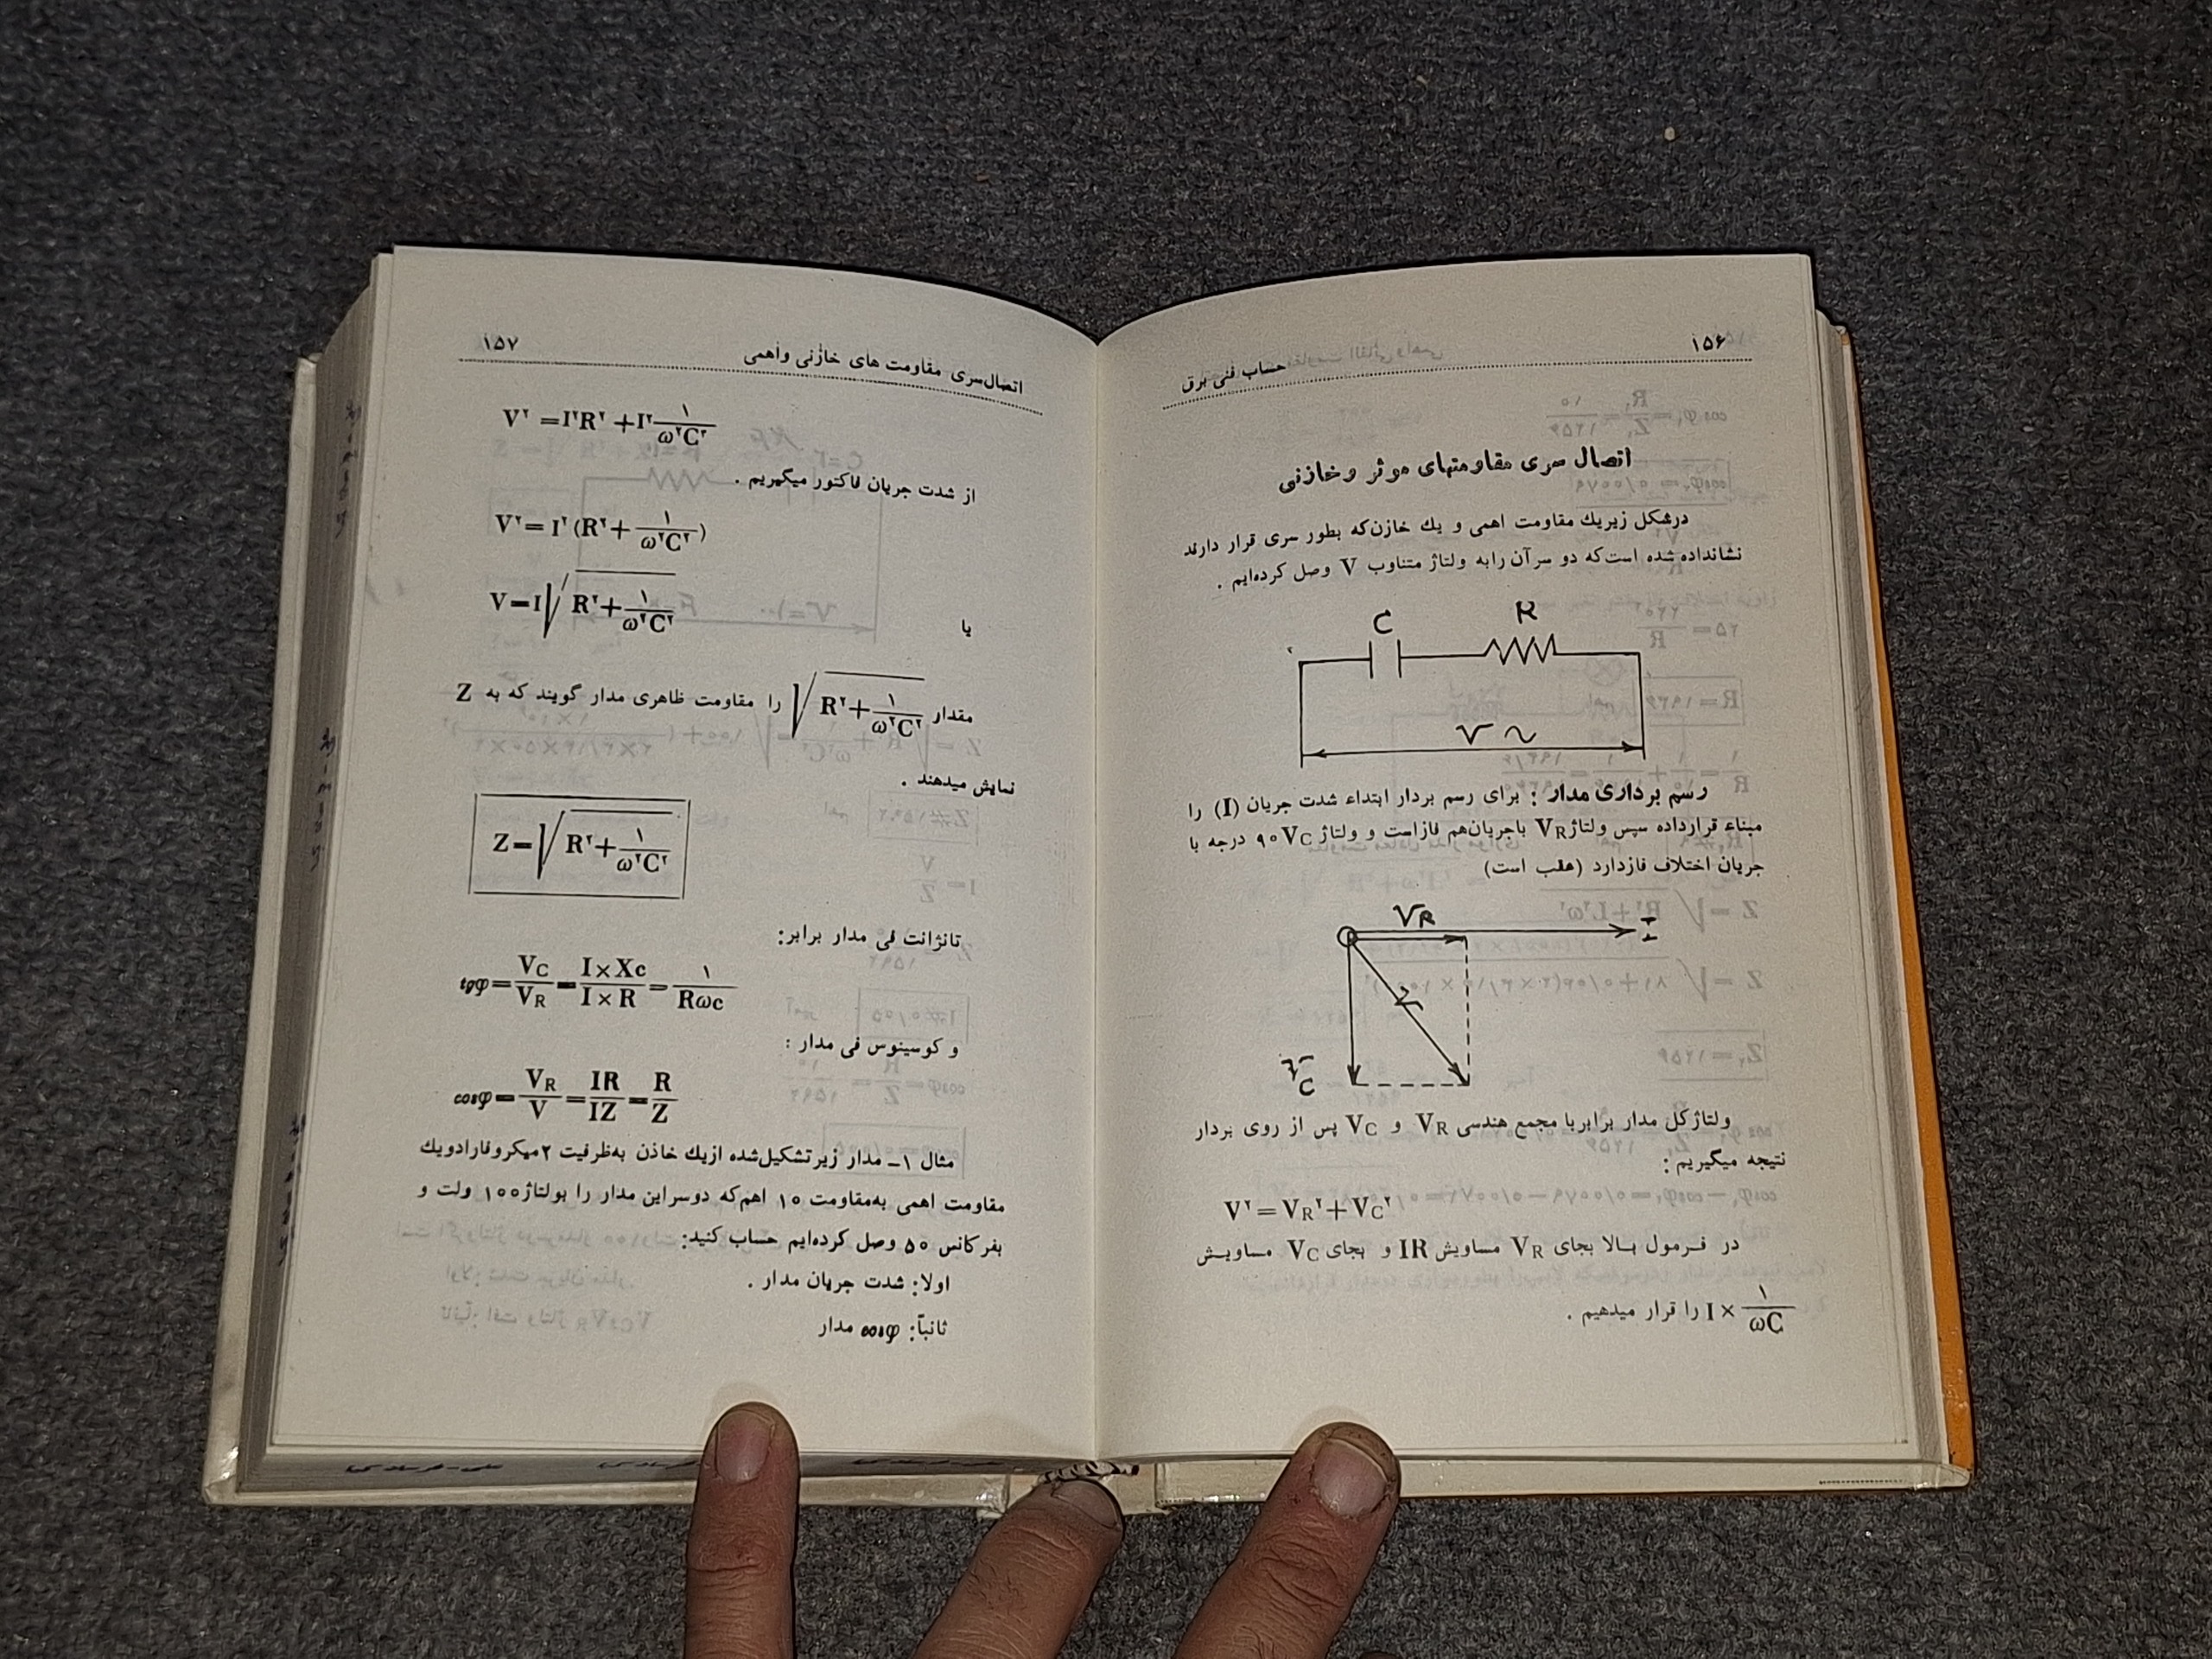 ۱۵۶
حساب فنی برق
اتصال سری مقاومتهای موثر و خازنی
درشکل زیریك مقاومت اهمی و یك خازن‌که بطور سری قرار دارند
نشانداده شده است‌که دو سر آن رابه ولتاژ متناوب V وصل کرده‌ایم .
C R
V ~
رسم برداری مدار : برای رسم بردار ابتداء شدت جریان (I) را
مبناء قرارداده سپس ولتاژ VR باجریان‌هم فازاست و ولتاژ VC ۹۰ درجه با
جریان اختلاف فازدارد (عقب است)
VR I
Z
V
C
ولتاژکل مدار برابربا مجمع هندسی VR و VC پس از روی بردار
نتیجه میگیریم :
V² = VR² + VC²
در فرمول بالا بجای VR مساویش IR و بجای VC مساویش
I × ۱/ωC را قرار میدهیم .
۱۵۷
اتصال‌سری مقاومت های خازنی واهمی
V² = I²R² + I² ۱/ω²C²
از شدت جریان فاکتور میگیریم .
V² = I² (R² + ۱/ω²C²)
یا
V = I√(R² + ۱/ω²C²)
مقدار √(R² + ۱/ω²C²) را مقاومت ظاهری مدار گویند که به Z
نمایش میدهند .
Z = √(R² + ۱/ω²C²)
تانژانت فی مدار برابر:
tgφ = VC/VR = I × Xc/I × R = ۱/Rωc
و کوسینوس فی مدار :
cosφ = VR/V = IR/IZ = R/Z
مثال ۱ـ مدار زیرتشکیل‌شده ازیك خاذن به‌ظرفیت ۲میکروفارادویك
مقاومت اهمی به‌مقاومت ۱۰ اهم‌که دوسراین مدار را بولتاژ۱۰۰ ولت و
بفرکانس ۵۰ وصل کرده‌ایم حساب کنید:
اولا: شدت جریان مدار .
ثانیاً: cosφ مدار